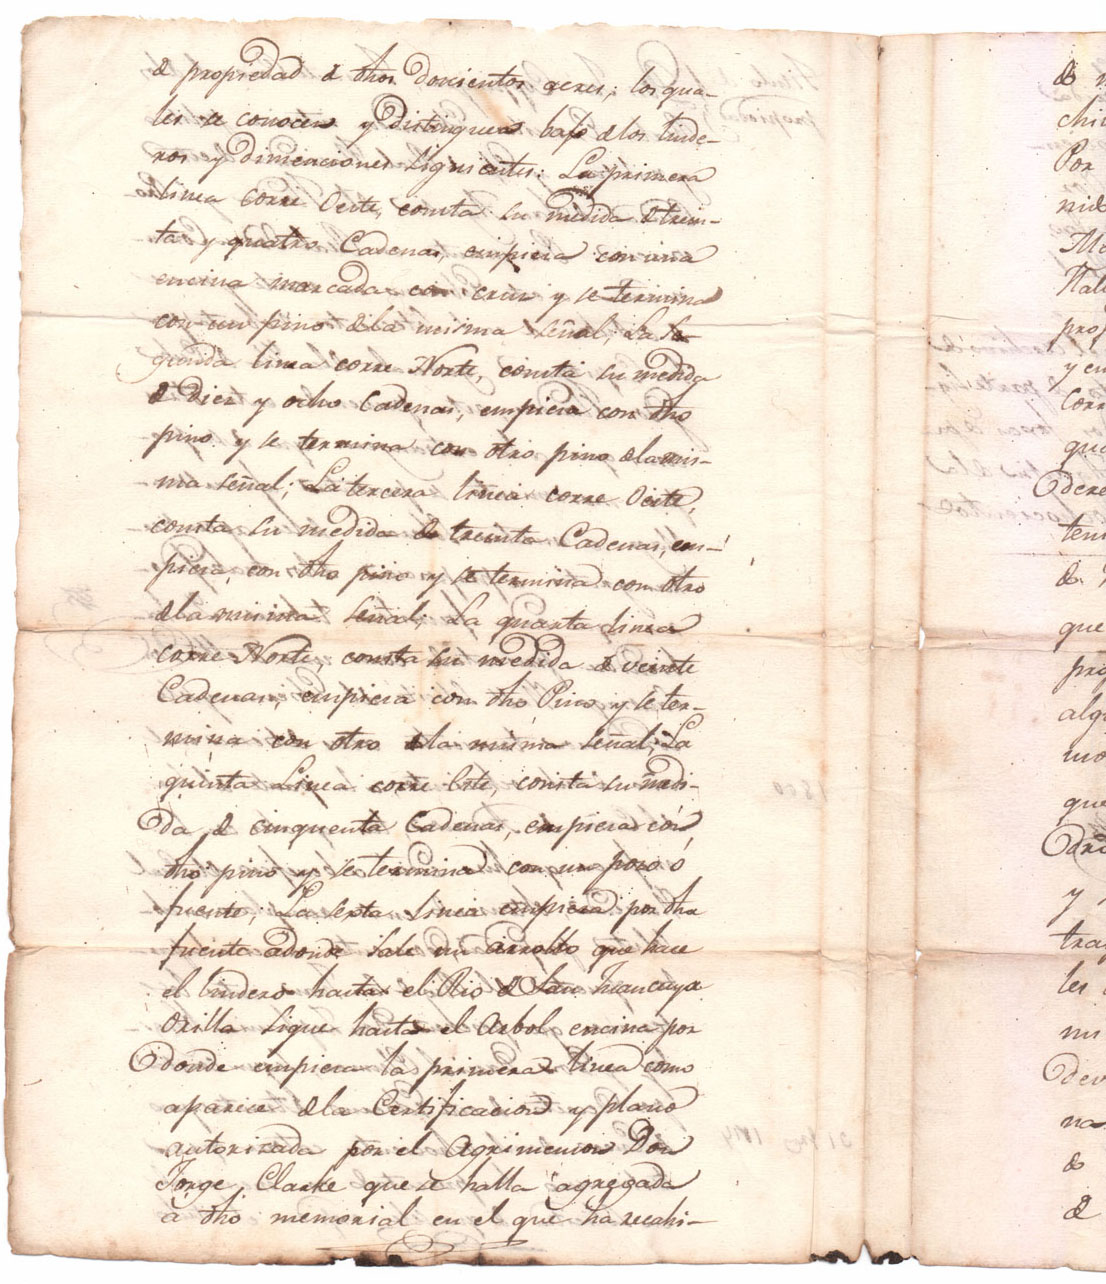 d propiedad d dhos Docientos acres; los qua-
les se conocen y Distinguen bajo de los linde-
ros y Dimenciones siguientes: La primera
linea corre Oeste, consta su medida d trein-
ta y quatro Cadenas, empieza con una
encina marcada con cruz y se termina
con un pino dela misma señal; La se-
gunda linea corre Norte, consta su medida
d Diez y ocho Cadenas, empieza con dho
pino y se termina con otro pino dela mis-
ma señal; La tercera linea corre Oeste,
consta su medida d treinta Cadenas, em-
pieza con dho pino y se termina con otro
dela misma señal; La quarta linea
corre Norte, consta su medida d veinte
Cadenas, empieza con dho Pino y se ter-
mina con otro dela misma señal; La
quinta Linea corre Este, consta su medi-
da d cinquenta Cadenas, empieza con
dho pino y se termina con un pozo ó
fuente; La sexta Linea empieza por dha
fuente adonde sale un arrollo que hace
el lindero hasta el Rio d San Juan cuya
orilla sigue hasta el Arbol encina por
donde empieza la primera linea como
aparece dela Certificacion y plano
autorizada por el Agrimensor Don
Jorge Clarke que se halla agregada
a dho memorial en el que ha recahi-
de
chi
Por
nid
pro
y en
corr
qua
dere
ten
de
que
pro
alg
mo
que
y
tra
les
mi
dev
na
de
d